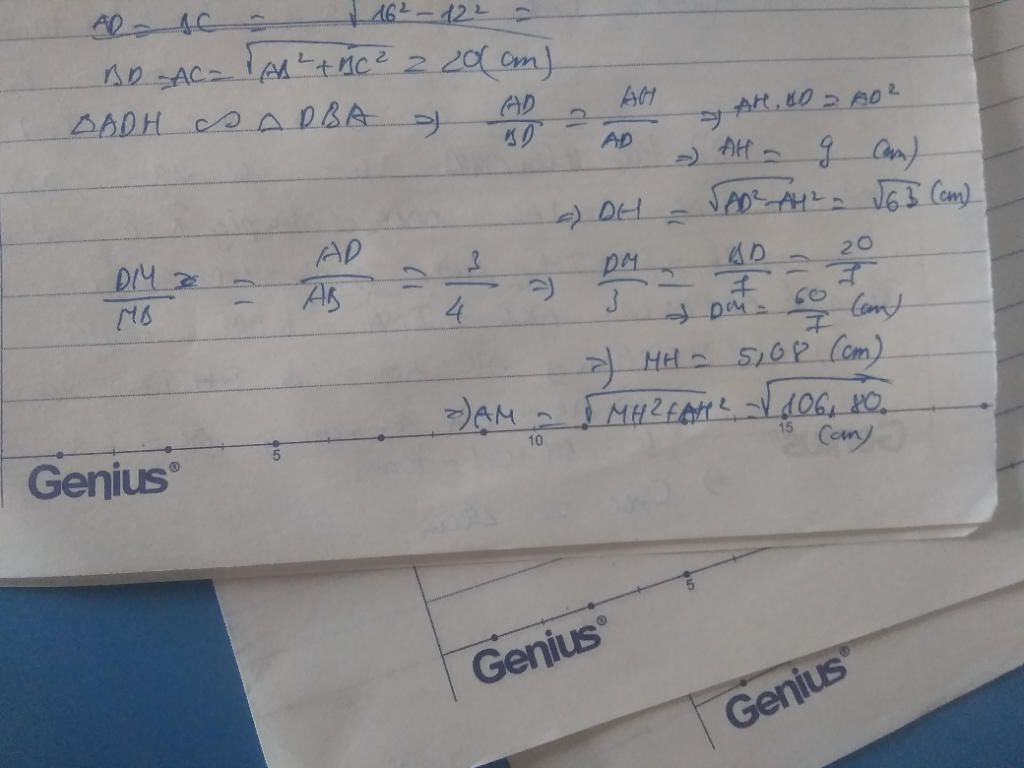 AD = BC = √16² - 12² =
BD = AC = √AB² + BC² = 20(cm)
△ADH ∽ △DBA ⇒ AD/BD = AH/AD ⇒ AH.BD = AD²
⇒ AH = 9 (cm)
⇒ DH = √AD² - AH² = √63 (cm)
DM/MB = AD/AB = 3/4 ⇒ DM/3 = BD/7 = 20/7
⇒ DM = 60/7 (cm)
⇒ MH = 5,08 (cm)
⇒ AM = √MH² + AH² = √106,80
(cm)
5 10 15
Genius®
5
Genius®
Genius®